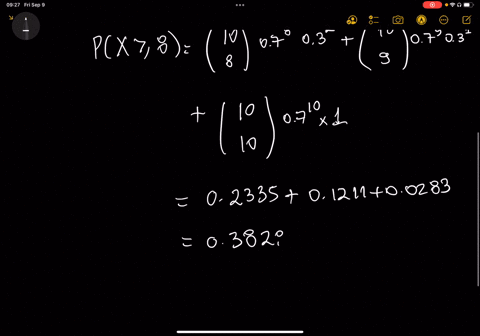 09:27 Fri Sep 9
P(X ⩾ 8) = (10 8) 0.7⁸ 0.3 + (10 9) 0.7⁹ 0.3
+ (10 10) 0.7¹⁰ × 1
= 0.2335 + 0.1211 + 0.0283
= 0.382